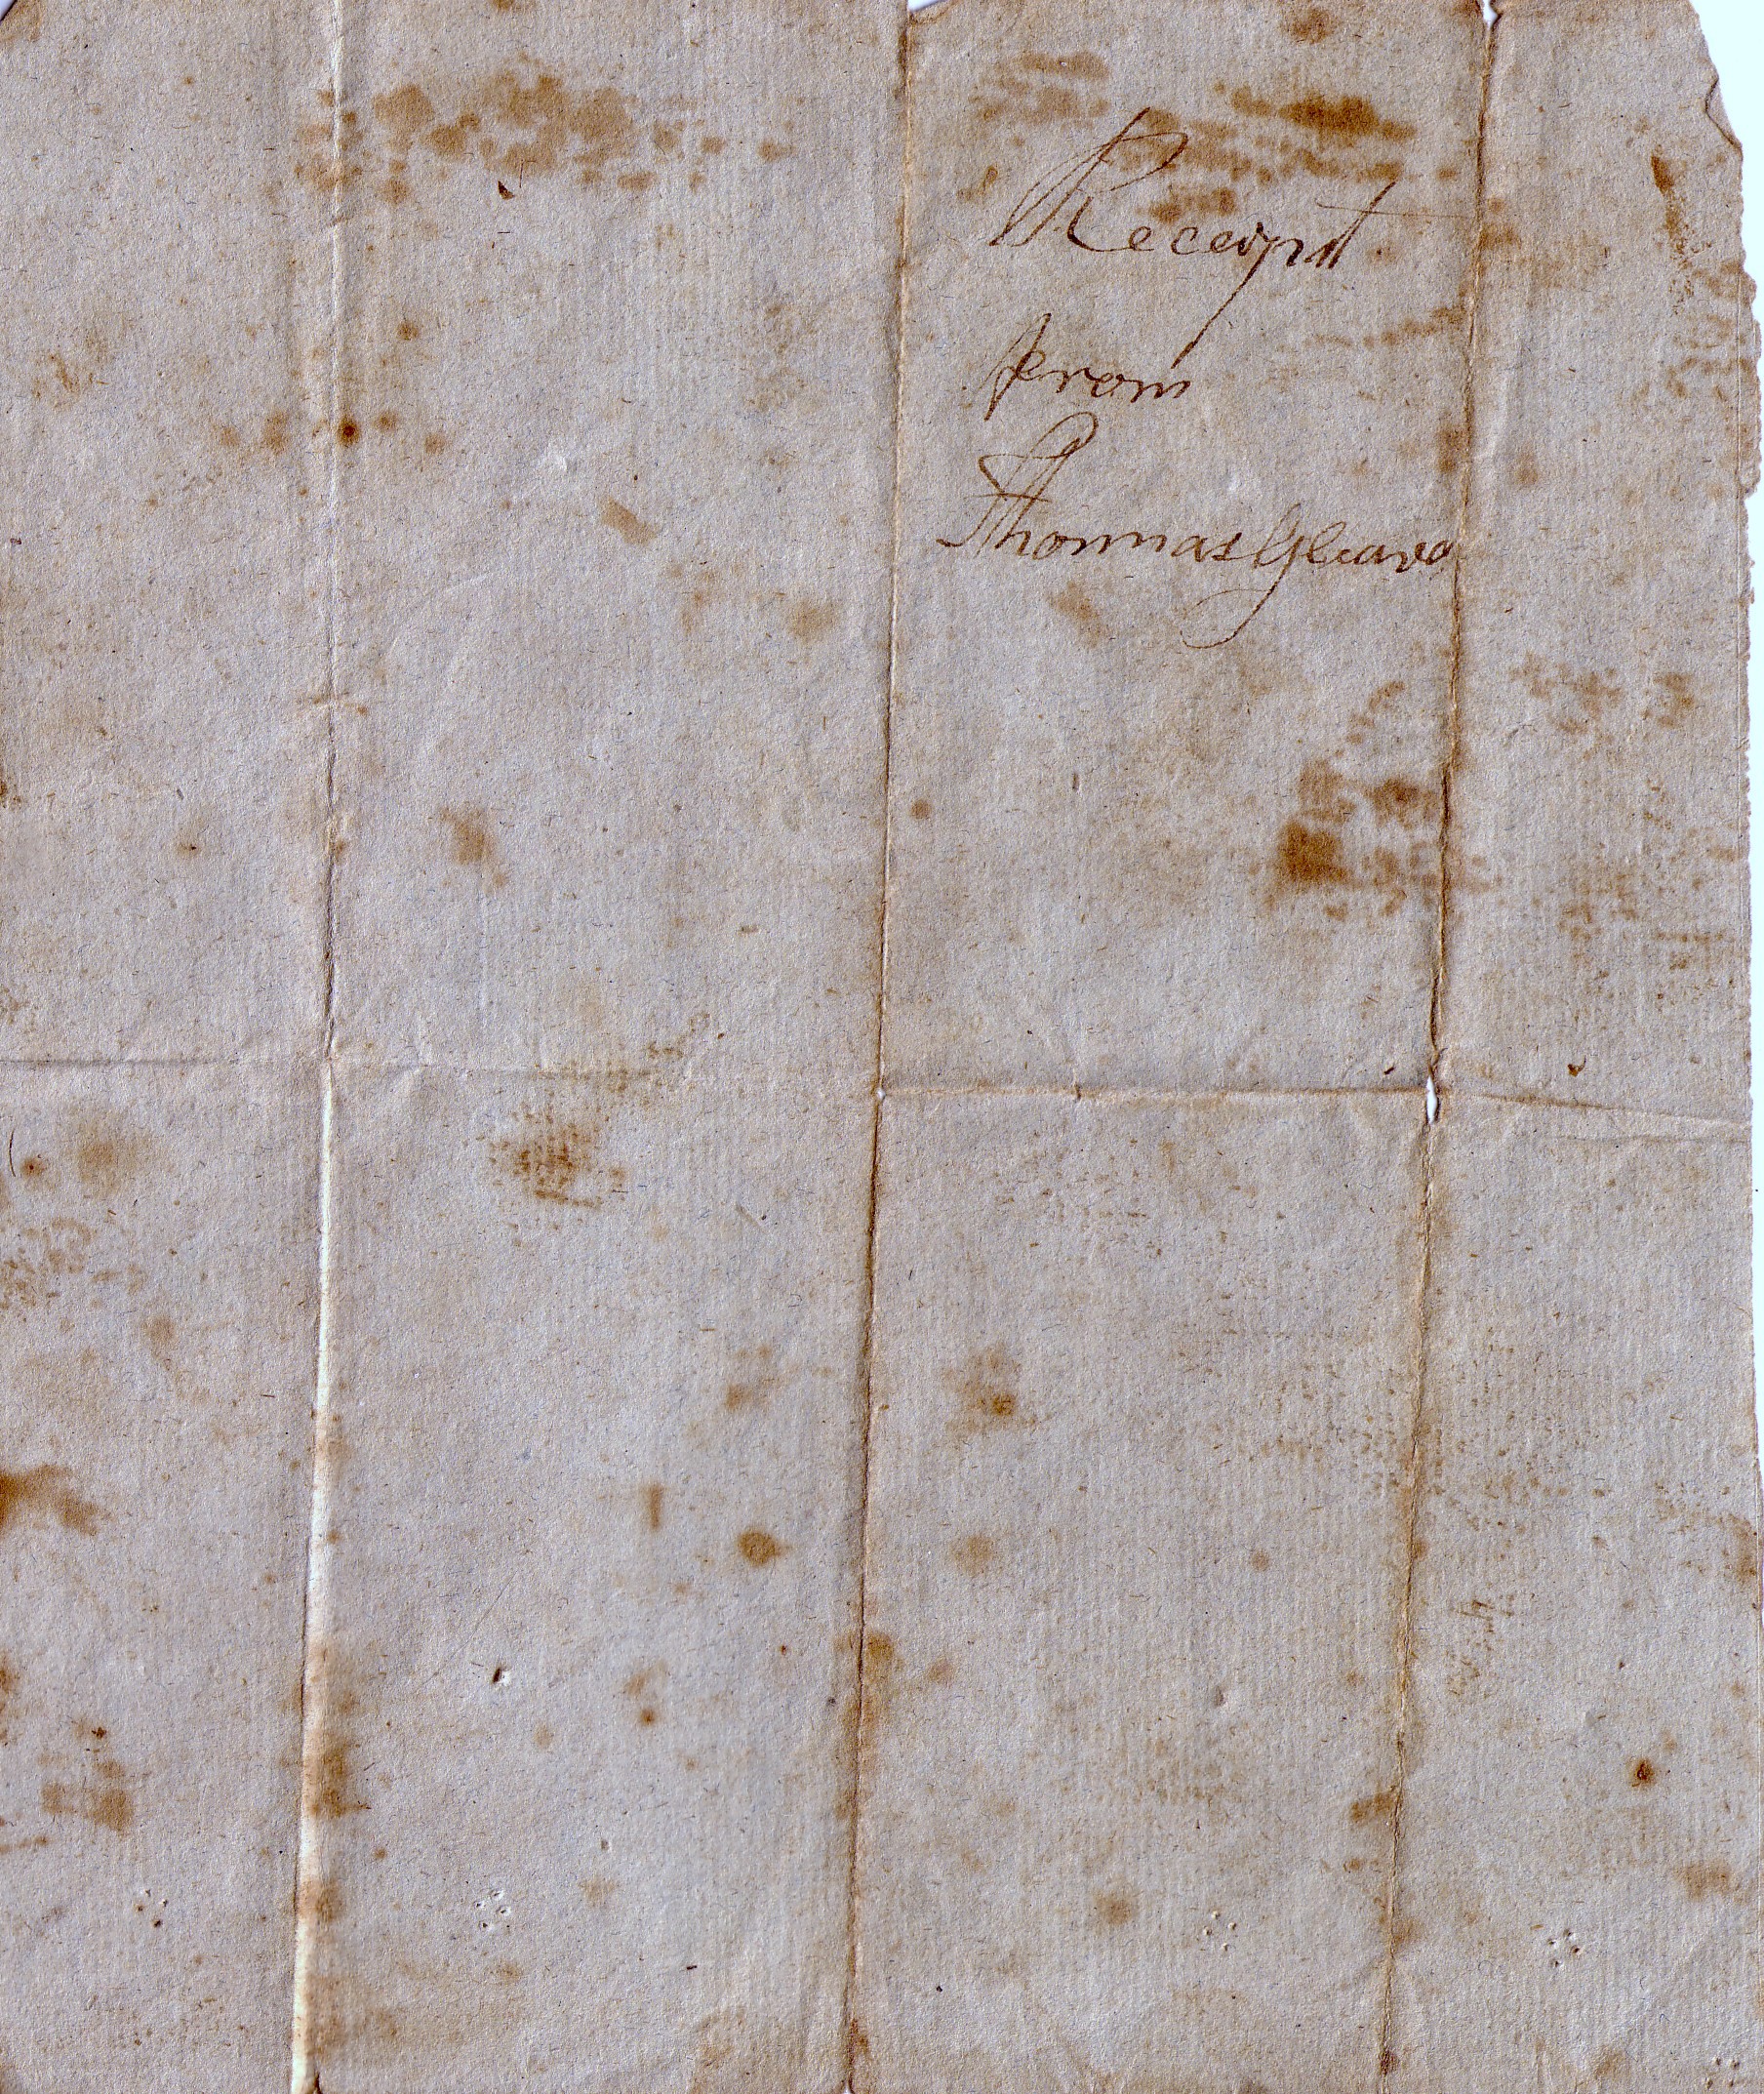 Receipt
from
Thomas Gleave